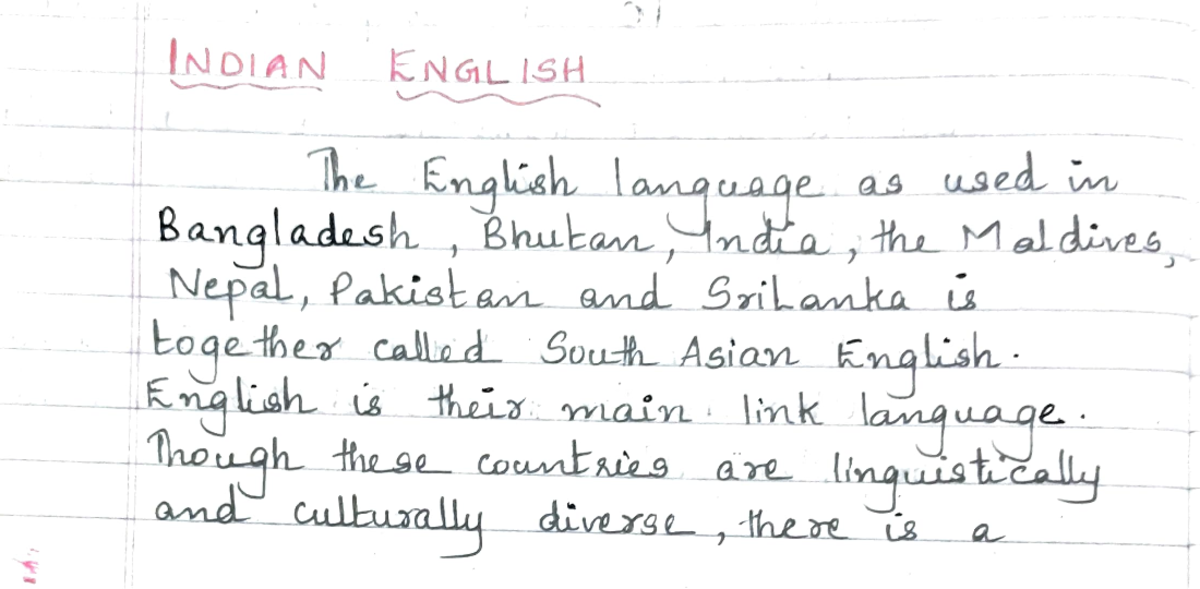 INDIAN ENGLISH
The English language as used in
Bangladesh, Bhutan, India, the Maldives,
Nepal, Pakistan and SriLanka is
together called South Asian English.
English is their main link language.
Though these countries are linguistically
and culturally diverse, there is a